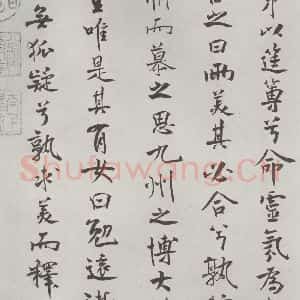 以筳篿兮命靈氣為
之曰兩美其必合兮孰
而慕之思九州之博大
唯是其有女曰勉遠
無狐疑兮孰求美而釋
Shufawang.cn